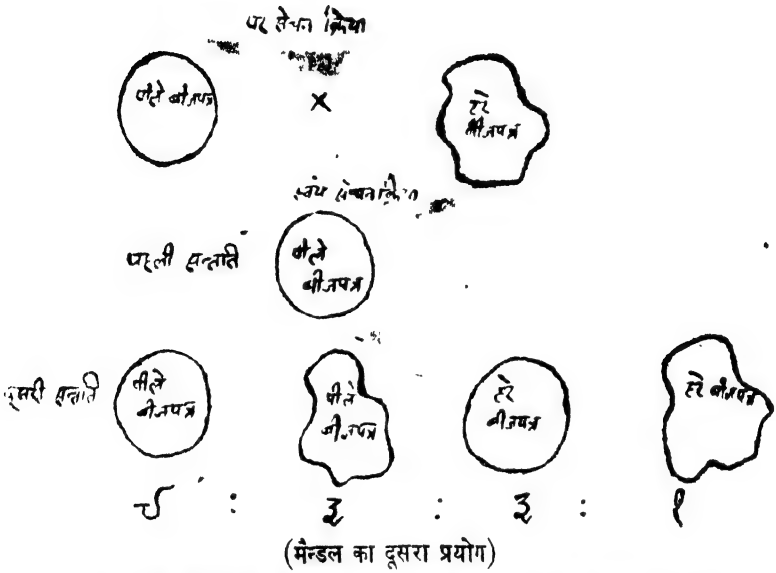 पर सेचन क्रिया
पीले बीजपत्र
×
हरे
बीजपत्र
स्वयं सेचन क्रिया
पहली सन्तति
पीले
बीजपत्र
दूसरी सन्तति
पीले
बीजपत्र
पीले
बीजपत्र
हरे
बीजपत्र
हरे बीजपत्र
९ : ३ : ३ : १
(मेन्डल का दूसरा प्रयोग)